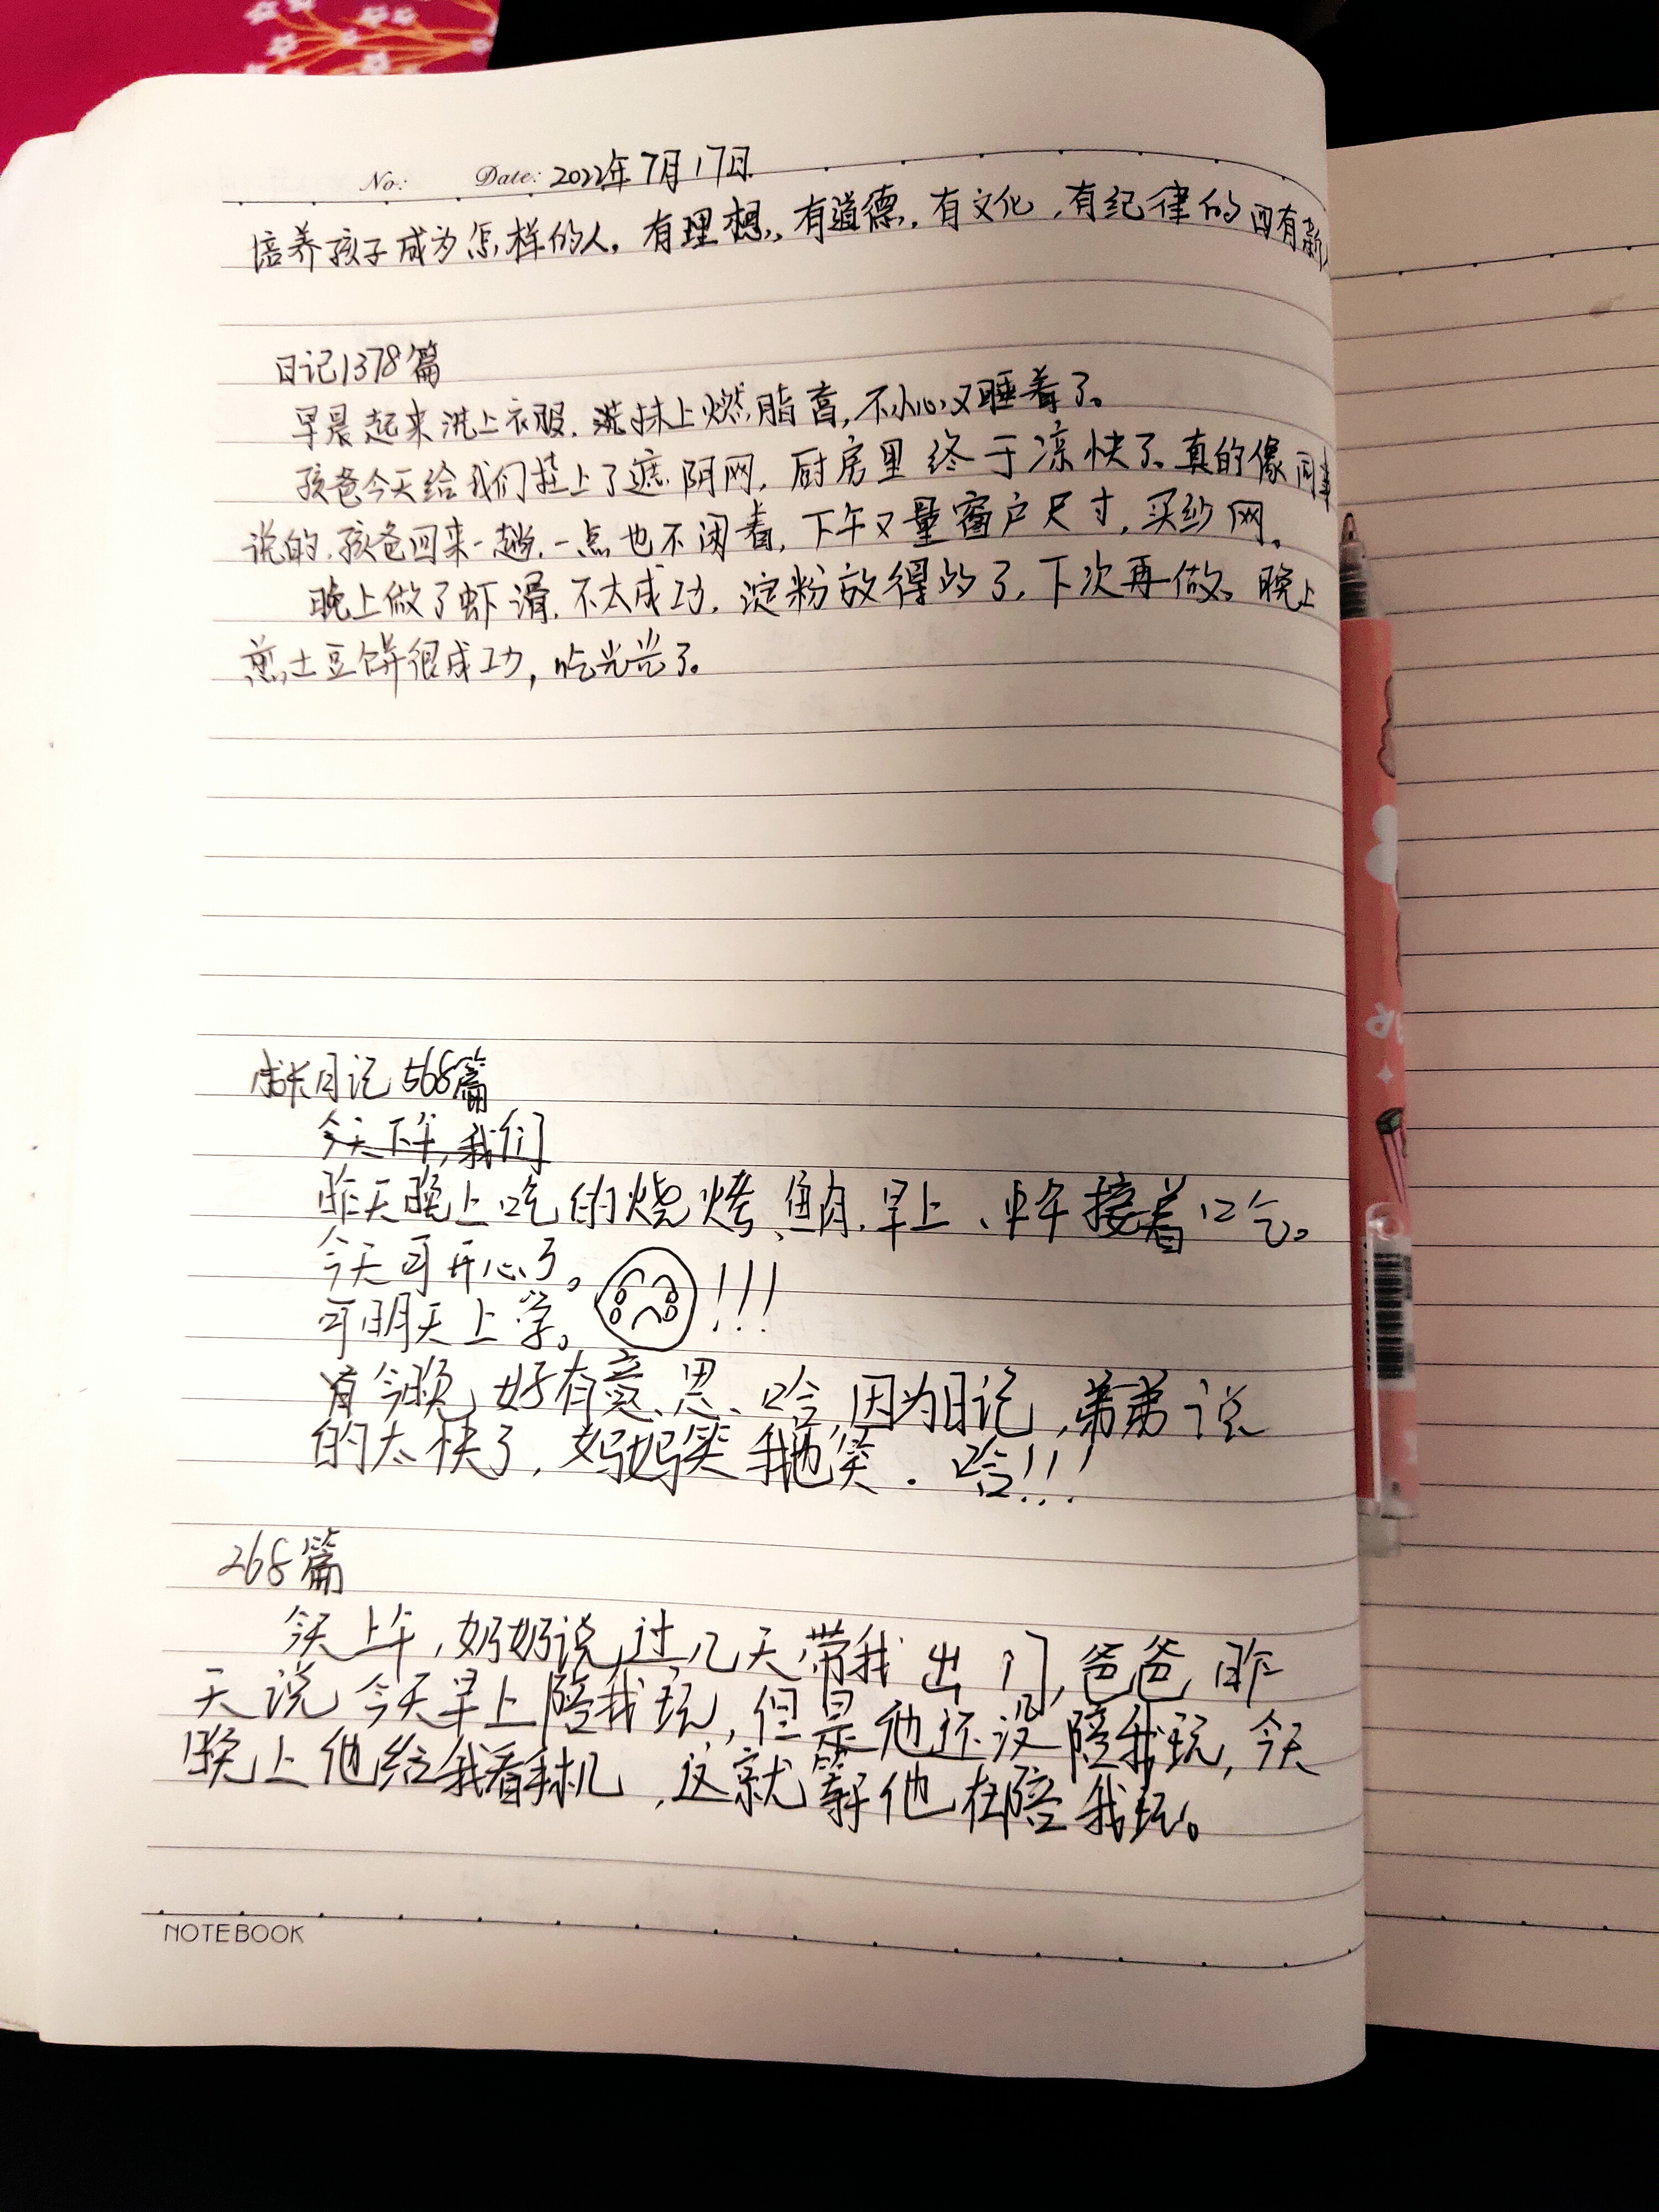 No: Date: 2022年7月17日
培养孩子成为怎样的人。有理想、有道德、有文化、有纪律的四有新人
日记1378篇
早晨起来洗上衣服,抹上燃脂膏,不小心又睡着了。
孩爸今天给我们挂上了遮阴网,厨房里终于凉快了。真的像同事
说的,孩爸回来一趟,一点也不闲着,下午又量窗户尺寸,买纱网。
晚上做了虾滑,不太成功,淀粉放得的了,下次再做。晚上
煎土豆饼很成功,吃光光了。
成长日记568篇
今天下午,我们
昨天晚上吃的烧烤、鱼肉,早上、中午接着吃。
今天可开心了。
可明天上学。!!!
今晚好有意思、哈,因为日记,弟弟说
的太快了,妈妈笑我也笑.哈!!!
268篇
今天上午,奶奶说过几天带我出门,爸爸昨
天说今天早上陪我玩,但是他还没陪我玩,今天
晚上他给我看手机,这就等他在陪我玩。
NOTEBOOK